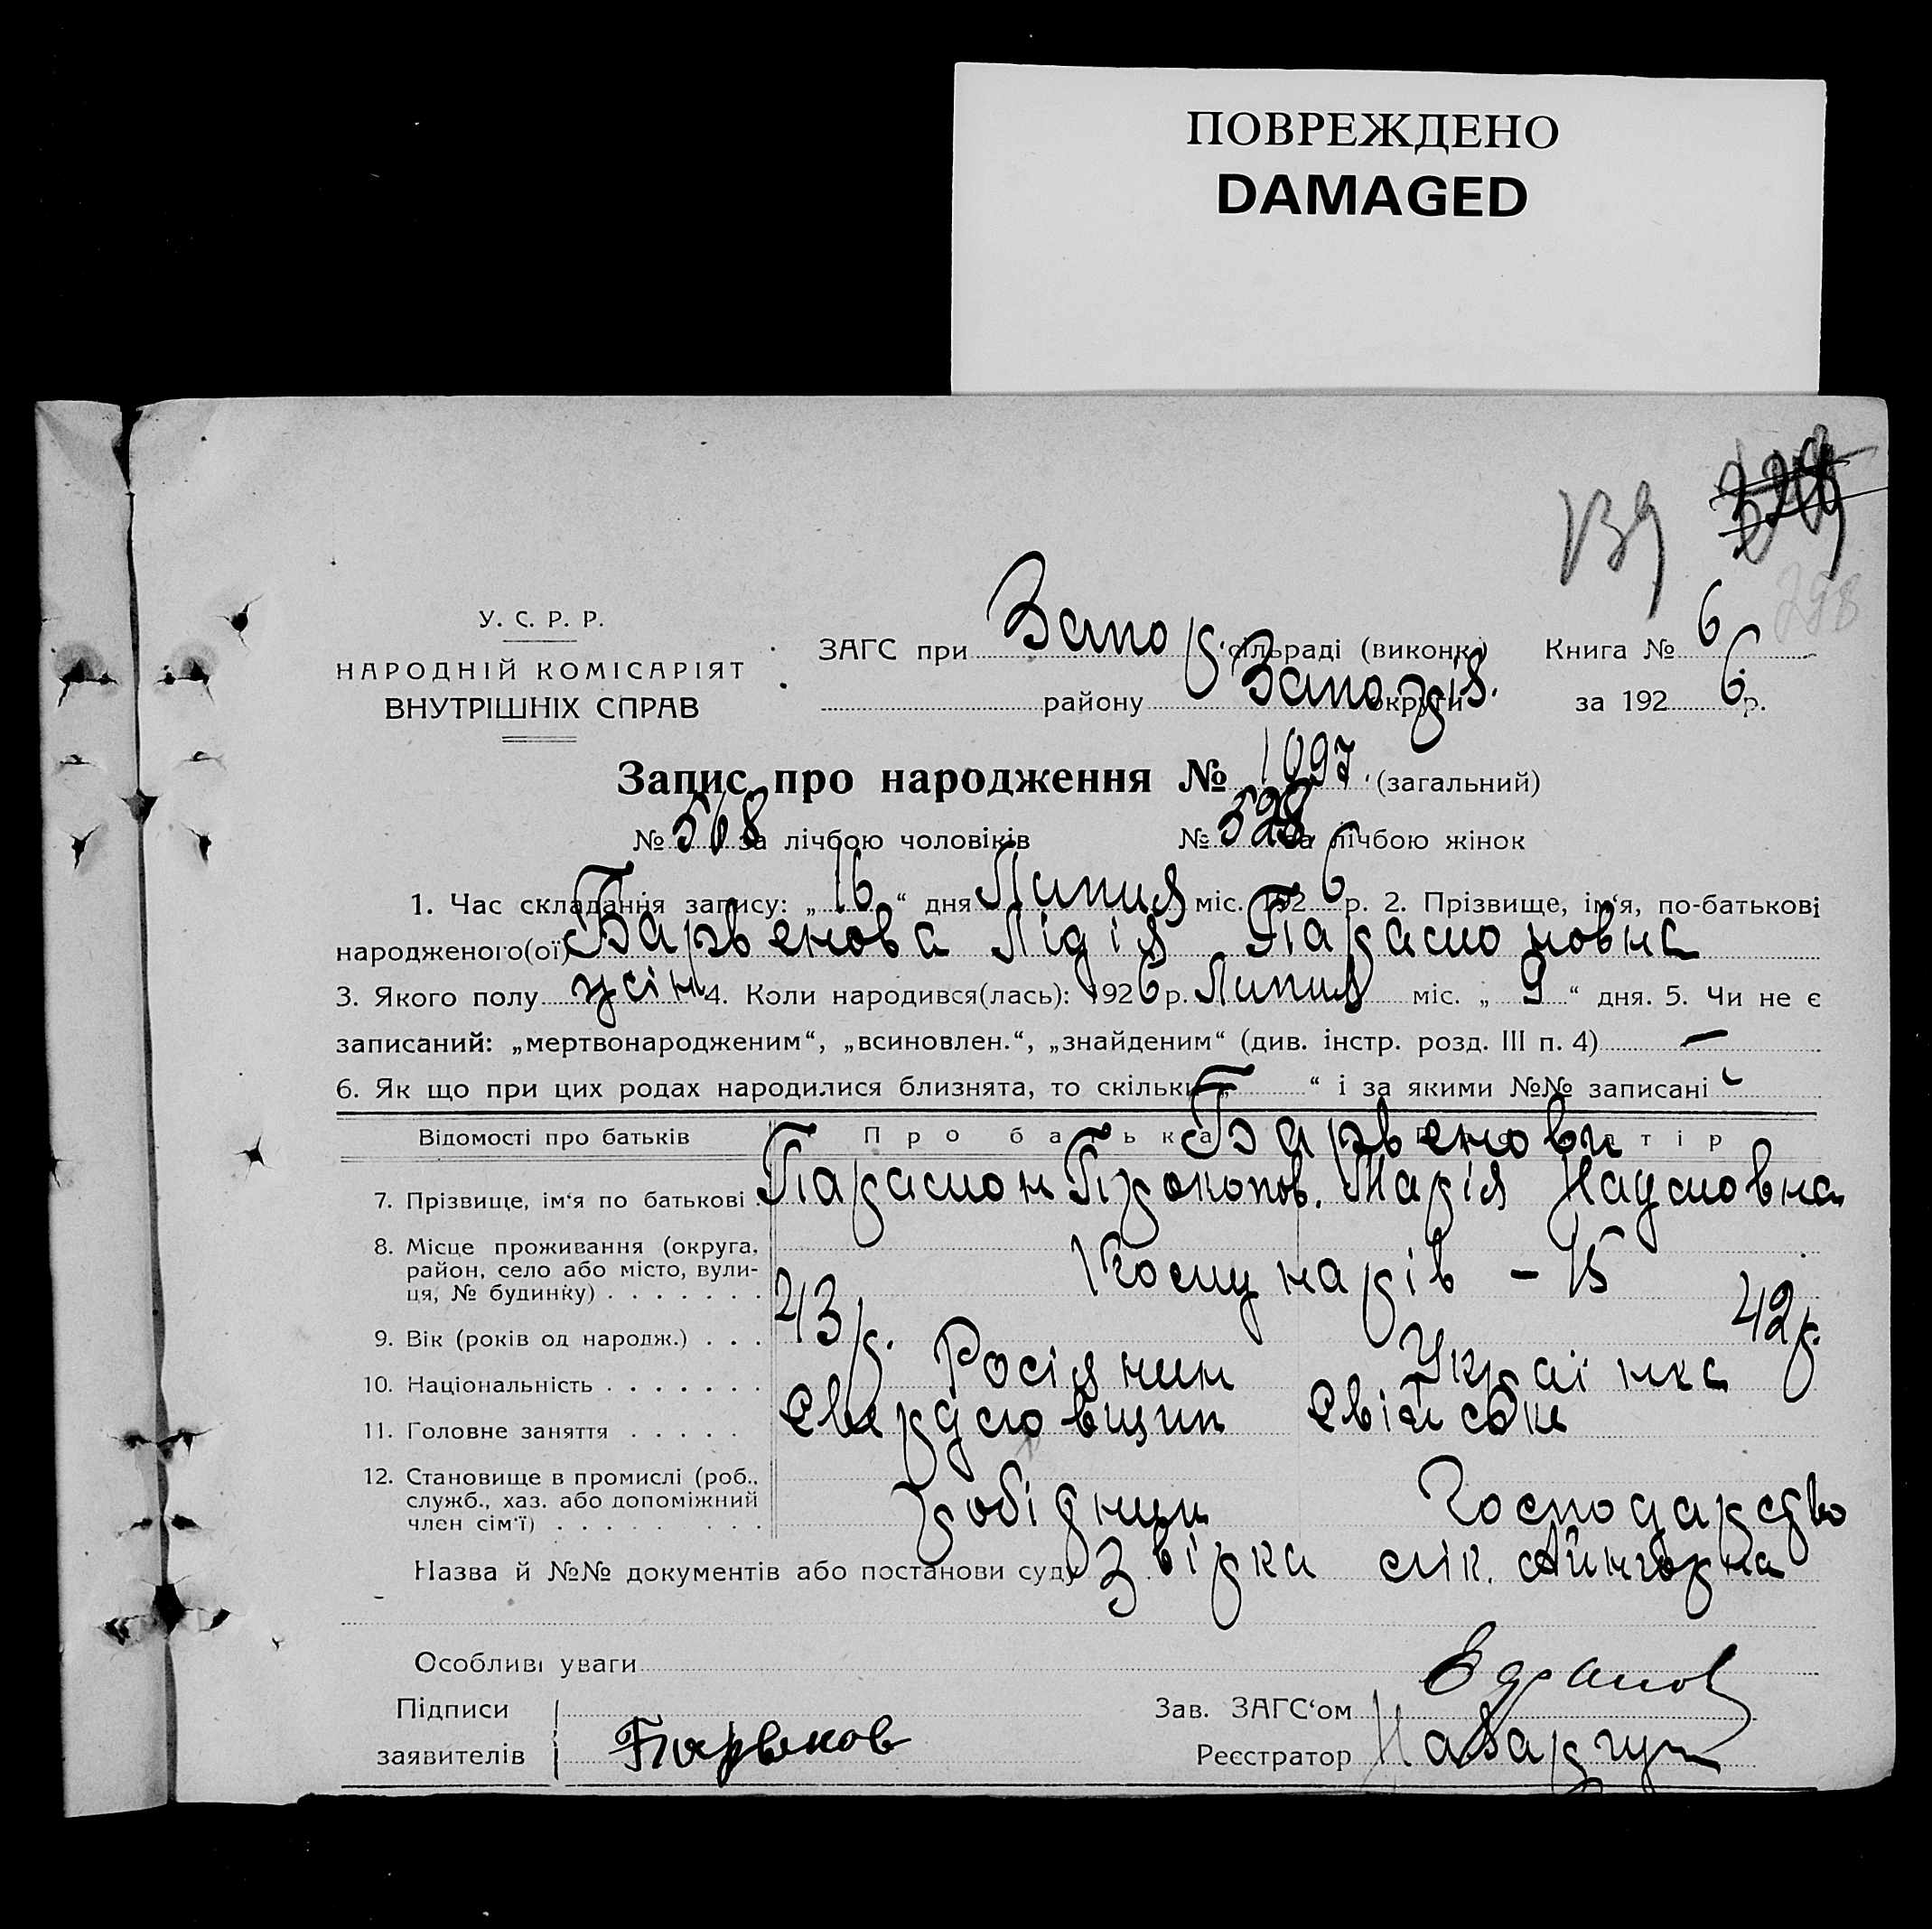 ПОВРЕЖДЕНО
DAMAGED
139
298
У. С. Р. Р.
НАРОДНІЙ КОМІСАРІЯТ
ВНУТРІШНІХ СПРАВ
ЗАГС при Запор. сільраді (виконк.) Книга № 6
району Запоріз. округи за 1926 р.
Запис про народження № 1097 (загальний)
№ 568 за лічбою чоловіків № 528 за лічбою жінок
1. Час складання запису: „16“ дня Липня міс. 1926 р. 2. Прізвище, ім‘я, по-батькові
народженого(ої) Барвенова Лідія Парамоновна
3. Якого полу жін 4. Коли народився(лась): 1926 р. Липня міс. „9“ дня. 5. Чи не є
записаний: „мертвонародженим“, „всиновлен.“, „знайденим“ (див. інстр. розд. III п. 4) —
6. Як що при цих родах народилися близнята, то скільки „ “ і за якими №№ записані
Відомості про батьків Про батька Про матір
Барвенови
7. Прізвище, ім‘я по батькові Парамон Прокопов. Марія Наумовна
8. Місце проживання (округа, район, село або місто, вули-
ця, № будинку) Комунарів – 15
9. Вік (років од народж.) 43 р. 42 р.
10. Національність Росіянин Українка
11. Головне заняття
12. Становище в промислі (роб., служб., хаз. або допоміжний
член сім‘ї) робідник Господарство
Назва й №№ документів або постанови суду Звірка лік.
Особливі уваги
Підписи Зав. ЗАГС‘ом
заявителів Барвенов Реєстратор